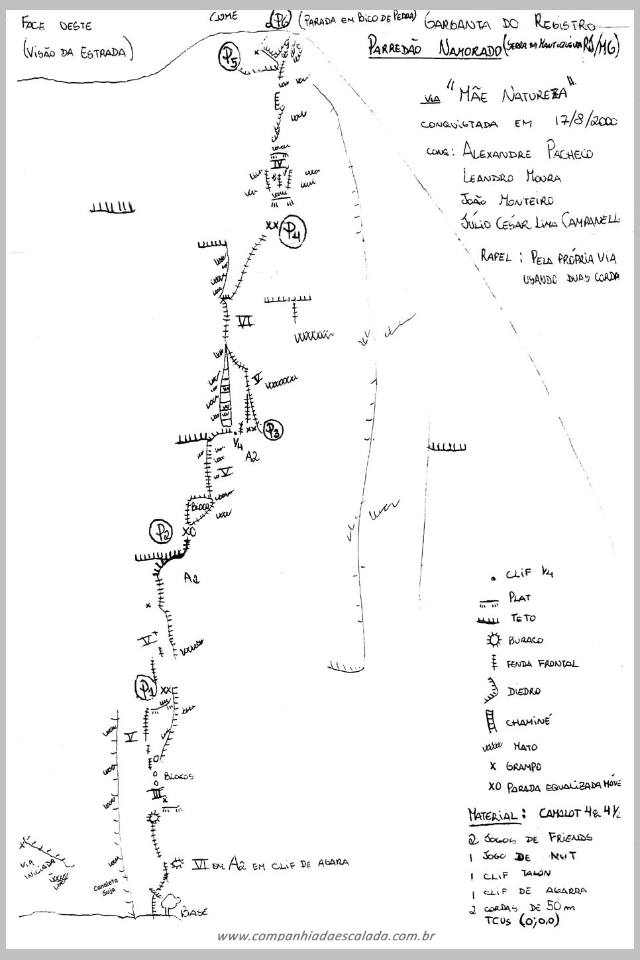 FACE OESTE
(VISÃO DA ESTRADA)
CUME
P6 (PARADA EM BICO DE PEDRA)
GARGANTA DO REGISTRO
PARREDÃO NAMORADO (SERRA DA MANTIQUEIRA RJ/MG)
VIA "MÃE NATUREZA"
CONQUISTADA EM 17/8/2000
CONQ: ALEXANDRE PACHECO
LEANDRO MOURA
JOÃO MONTEIRO
JÚLIO CESAR LIMA CAMPANELL
RAPEL: PELA PRÓPRIA VIA
USANDO DUAS CORDA
P5
IV
XX P4
VI
V
P3
1/4
A2
V
BLOCO
P2
XO
A2
V
P1 XX
V
BLOCOS
III
VI EM A2 EM CLIF DE AGARA
VIA
INICIADA
Canaleta
Suja
BASE
CLIF 1/4
PLAT
TETO
BURACO
FENDA FRONTAL
DIEDRO
CHAMINÉ
MATO
X GRAMPO
XO PARADA EQUALIZADA MÓVE
MATERIAL: CAMALOT 4 e 4 1/2
2 JOGOS DE FRIENDS
1 JOGO DE NUT
1 CLIF TALON
1 CLIF DE AGARRA
2 CORDAS DE 50 m
TCUS (0;0,0)
www.companhiadaescalada.com.br